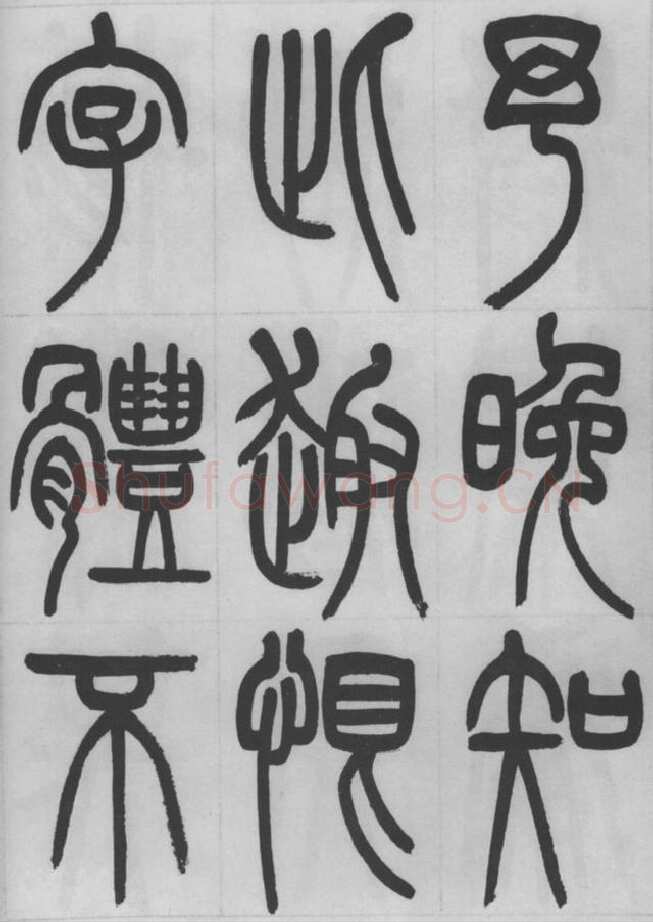 予晚知
此趣恨
字體不
Shufawang.CN